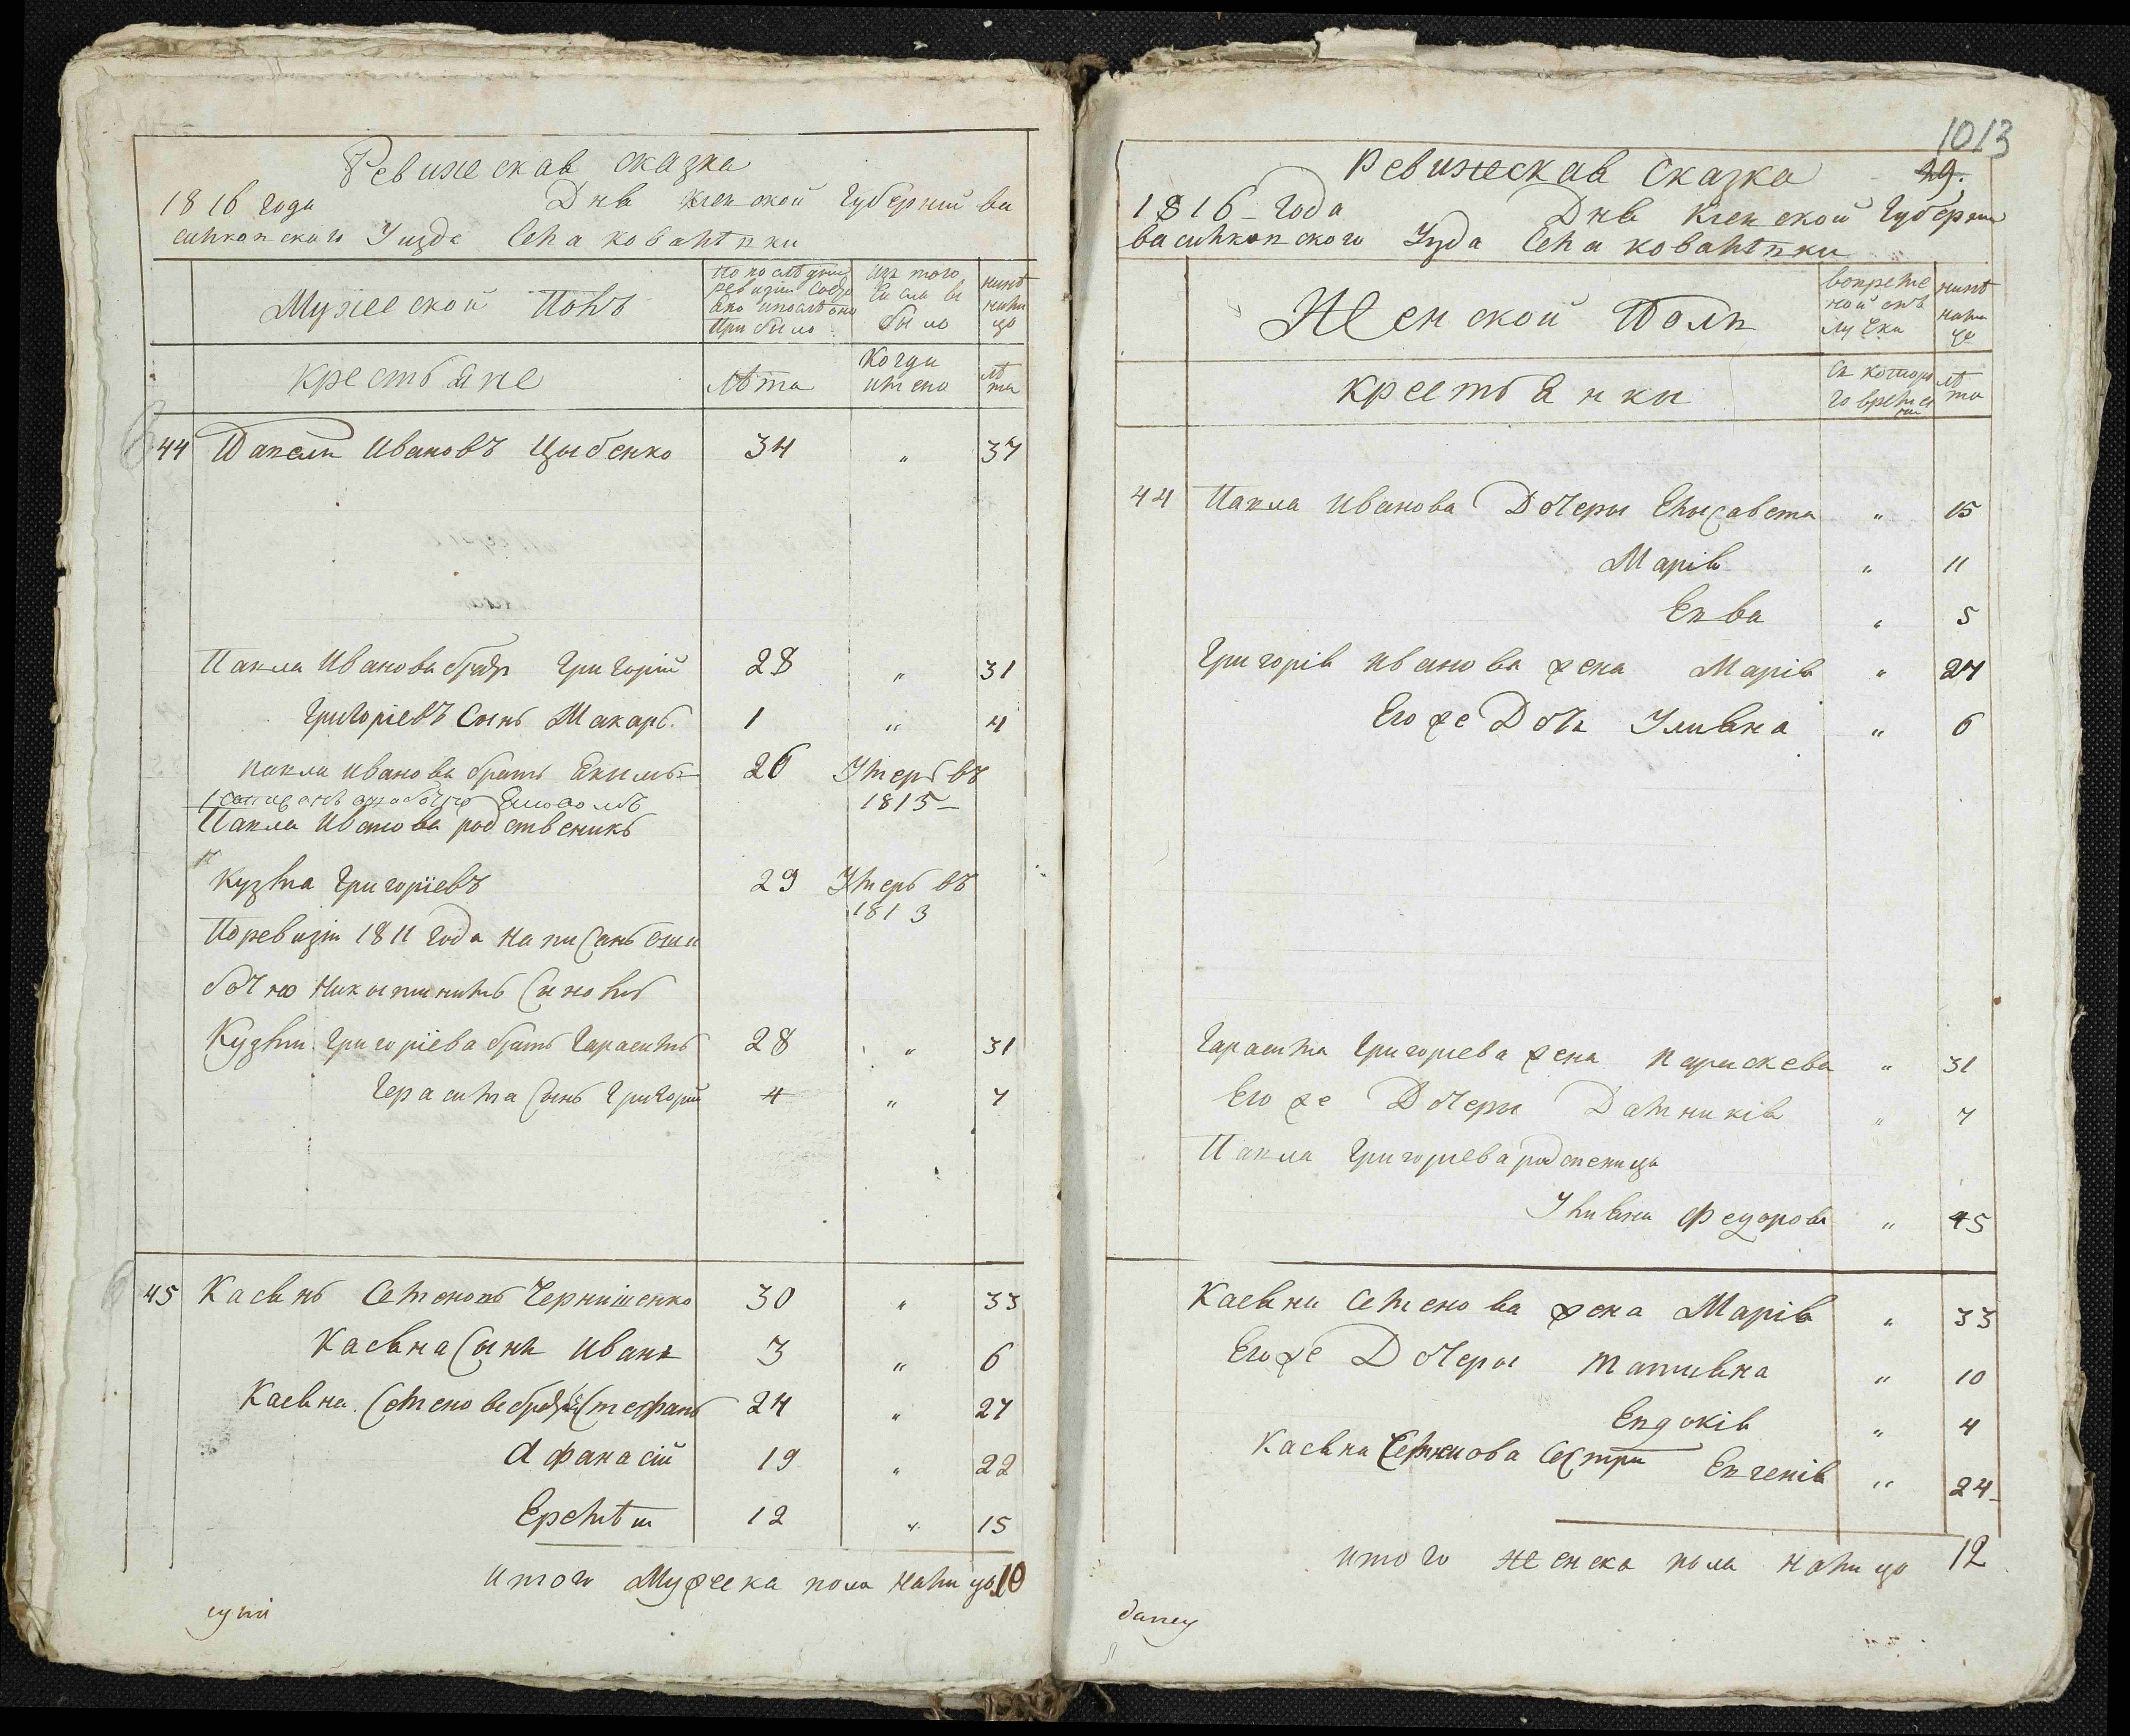 Ревижская сказка
1816 года Дня Киевской Губернии ва
силковского Уезда Села Ковалѣвки
Мужеской Полъ
По последней
ревизии состо
яло и после оно
й прибыло
Изъ того
числа вы
было
нынѣ
нали
цо
Крестьяне
Лѣта
Когда
имено
лѣ
та
44 Павелъ Ивановъ Цыбенко 34 " 37
Павла Иванова братъ Григорій 28 " 31
Григоріевъ Сынъ Макаръ 1 " 4
Павла Иванова братъ Екимъ 26 Умеръ въ
1815
Павла Иванова родственикъ
Кузма Григоріевъ 29 Умеръ въ
1813
Поревизіи 1811 года написанъ оши
бочно Сыномъ
Кузмы Григоріева братъ Гарасимъ 28 " 31
Герасима Сынъ Григорій 4 " 7
45 Касянъ Семеновъ Чернишенко 30 " 33
Касяна Сынъ Иванъ 3 " 6
Касяна Семенова братья Стефанъ 24 " 27
Афанасій 19 " 22
Еремѣй 12 " 15
итого Мужеска пола налицо 10
1013
29.
Ревижская Сказка
1816 года Дня Киевской Губернии
василковского Уезда Села Ковалѣвки
Женской Полъ
вовреме
ной отъ
лучки
нынѣ
нали
це
Крестьянки
Съ которо
го време
ни
лѣ
та
44 Павла Иванова Дочеры Елысавета " 15
Марія " 11
Евва " 5
Григорія Иванова жена Марія " 27
Его же Дочъ Уляна " 6
Гарасима Григориева жена Параскева " 31
Его же Дочеры Домникія " 7
Павла Григориева родственица
Уляна Федорова " 45
Касяна Семенова жена Марія " 33
Его же Дочеры Татияна " 10
Евдокія " 4
Касяна Семенова Сестра Евгенія " 24
итого женска пола налицо 12